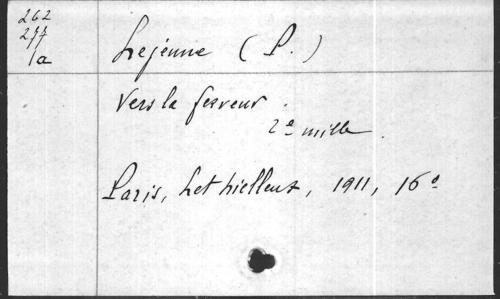 262
277
1a
Lejeune (P.)
Vers la ferveur.
2e mille
Paris, Lethielleux, 1911, 16°